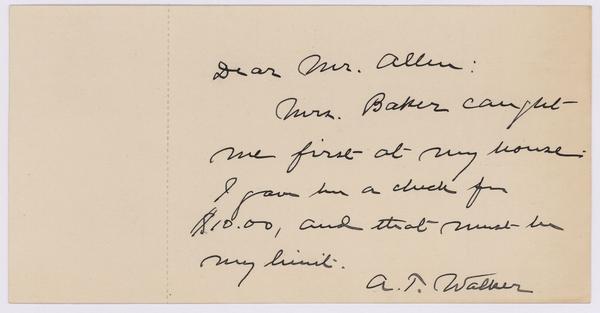 Dear Mr. Allen:
Mrs. Baker caught
me first at my house:
I gave her a check for
$10.00, and that must be
my limit.
A. T. Walker